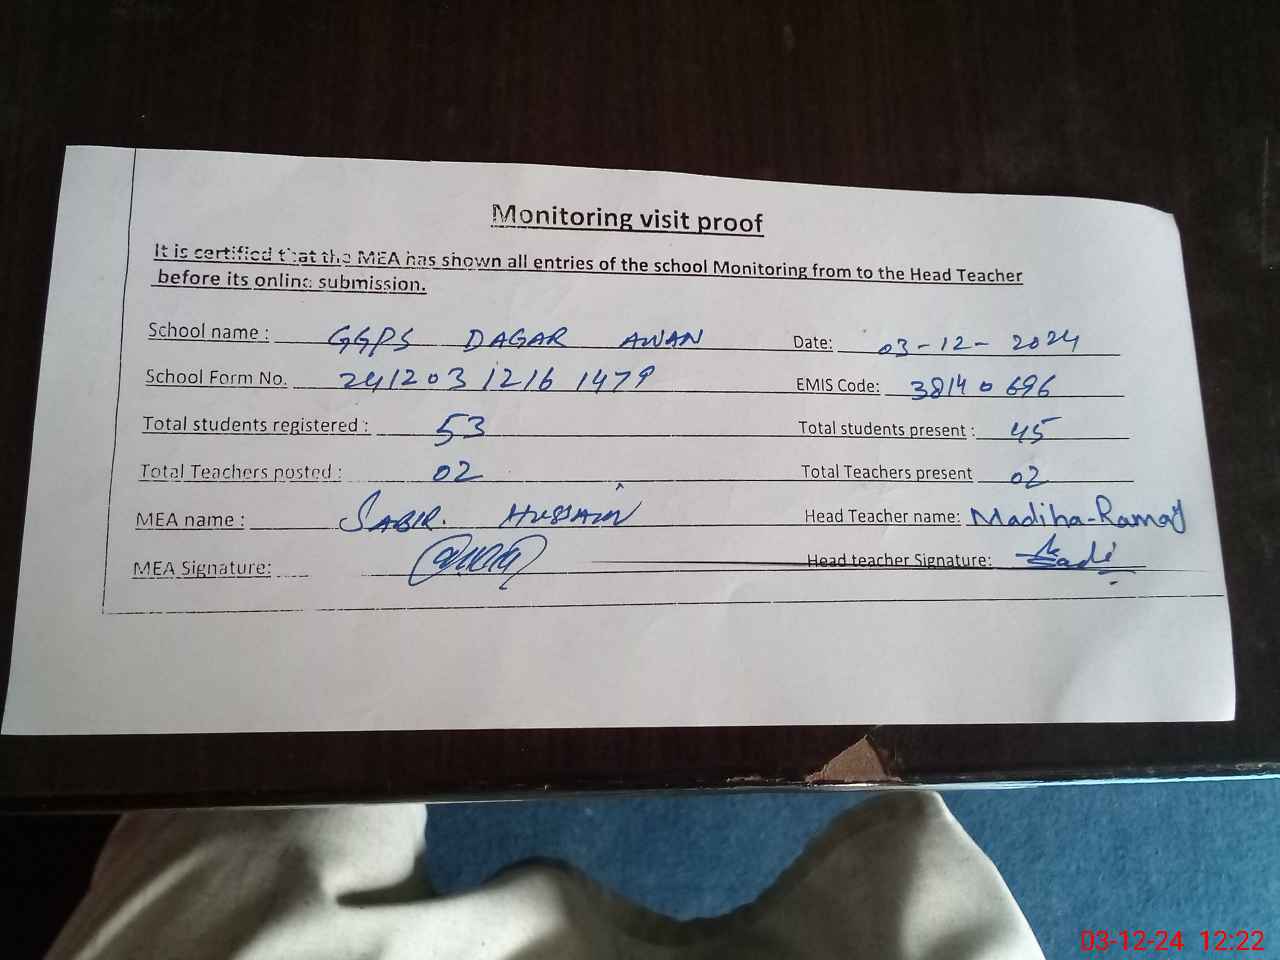 Monitoring visit proof
It is certified that the MEA has shown all entries of the school Monitoring from to the Head Teacher
before its online submission.
School name : GGPS DAGAR AWAN Date: 03-12-2024
School Form No. 241203 1216 1479 EMIS Code: 38140696
Total students registered : 53 Total students present : 45
Total Teachers posted : 02 Total Teachers present 02
MEA name : SABIR. HUSSAIN Head Teacher name: Madiha-Ramay
MEA Signature: Head teacher Signature:
03-12-24 12:22